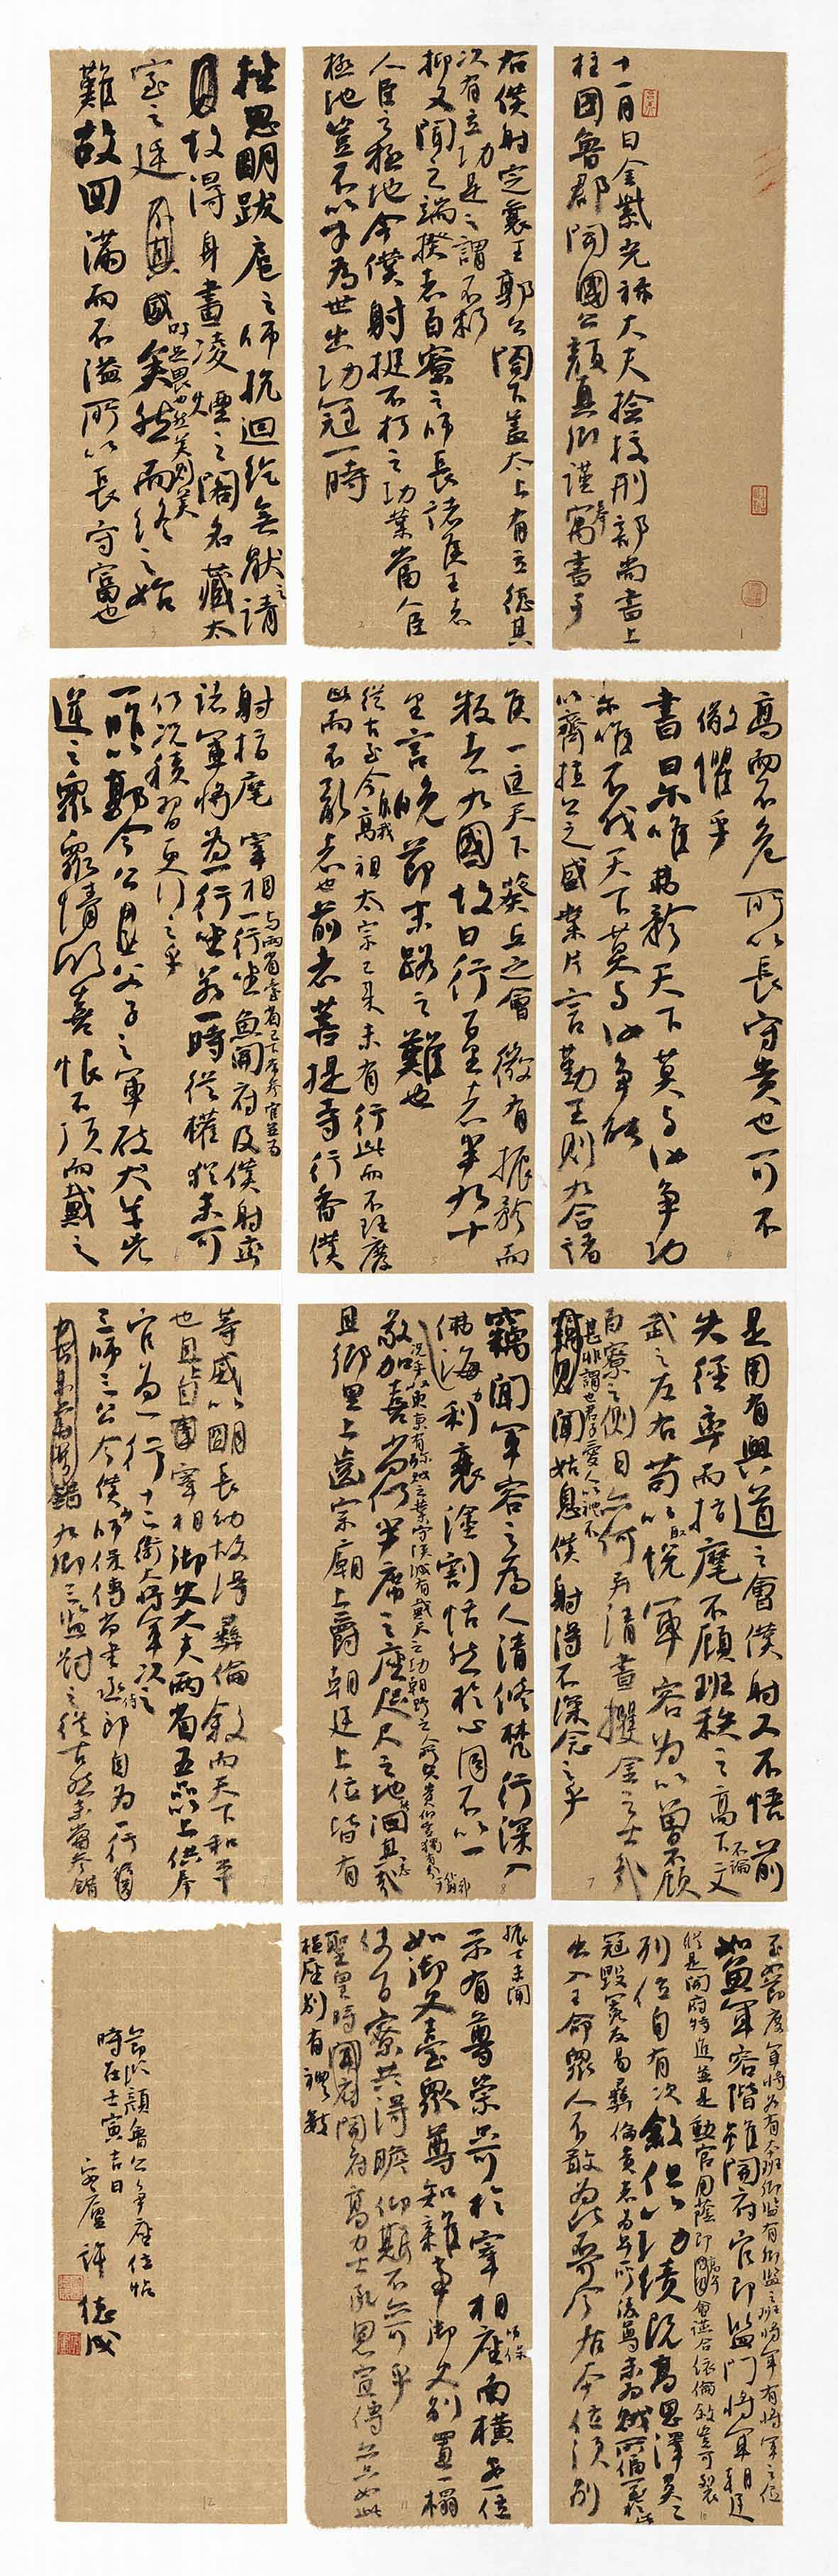 十一月日金紫光祿大夫檢校刑部尚書上
柱國魯郡開國公顏真卿謹奉寓書于
右僕射定襄王郭公閤下蓋太上有立德其
次有立功是之謂不朽
抑又聞之端揆者百寮之師長諸侯王者
人臣之極地今僕射挺不朽之功業當人臣
極地豈不以才為世出功冠一時
挫思明跋扈之師抗迴紇無厭之請
故得身畫凌煙之閣名藏太
室之廷吁足畏也然美則美
矣然而終之始
難故曰滿而不溢所以長守富也
高而不危所以長守貴也可不
儆懼乎
書曰爾唯弗矜天下莫與汝爭功
爾唯不伐天下莫與汝爭能
以齊桓公之盛業片言勤王則九合諸
侯一匡天下葵丘之會微有振矜而
叛者九國故曰行百里者半九十
里言晚節末路之難也
從古至今自我高祖太宗已來未有行此而不理廢
此而不亂者也前者菩提寺行香僕
射指麾宰相與兩省臺省已下常參官並為
一行坐魚開府及僕射率
諸軍將為一行坐若一時從權猶未可
何況積習更行之乎
一昨以郭令公以父子之軍破犬羊兇
逆之眾眾情欣喜恨不頂而戴之
是用有興道之會僕射又不悟前
失徑率而指麾不顧班秩之高下不論文
武之左右苟以取悅軍容為心曾不顧
百寮之側目亦何異清晝攫金之士哉
甚非謂也君子愛人以禮不
竊見聞姑息僕射得不深念之乎
竊聞軍容之為人清修梵行深入
佛海況乎收東京有殄賊之業守陝城有戴天之功朝野之人所共貴仰豈獨有分於僕射
利衰塗割恬然於心固不以一
敬加喜尚何半席之座咫尺之地汩其志哉
且鄉里上齒宗廟上爵朝廷上位皆有
等威以明長幼故得彝倫敘而天下和平
也且上自宰相御史大夫兩省五品以上供奉
官自為一行十二衛大將軍次之
三師三公令僕少師保傅尚書丞侍郎自為一行
九卿三監對之從古然未嘗參錯
至如節度軍將各有本班卿監有卿監之班將軍有將軍之位
如魚軍容階雖開府官即監門將軍朝廷
縱是開府特進並是勳官用蔭即有高卑會讌合依倫敘豈可裂
列位自有次敘但以功績既高恩澤莫二
冠毀冕反易彝倫貴者為卑所淩尊者為賊所偪一至於此
出入王命眾人不敢為比不可令居本位須別
振古未聞
示有尊榮只可於宰相師保座南橫安一位
如御史臺眾尊知雜事御史別置一榻
使百寮共得瞻仰斯不亦可乎
聖皇時開府高力士承恩宣傳亦只如此
橫座別有禮數
節臨顏魯公爭座位帖
時在壬寅吉日
德成